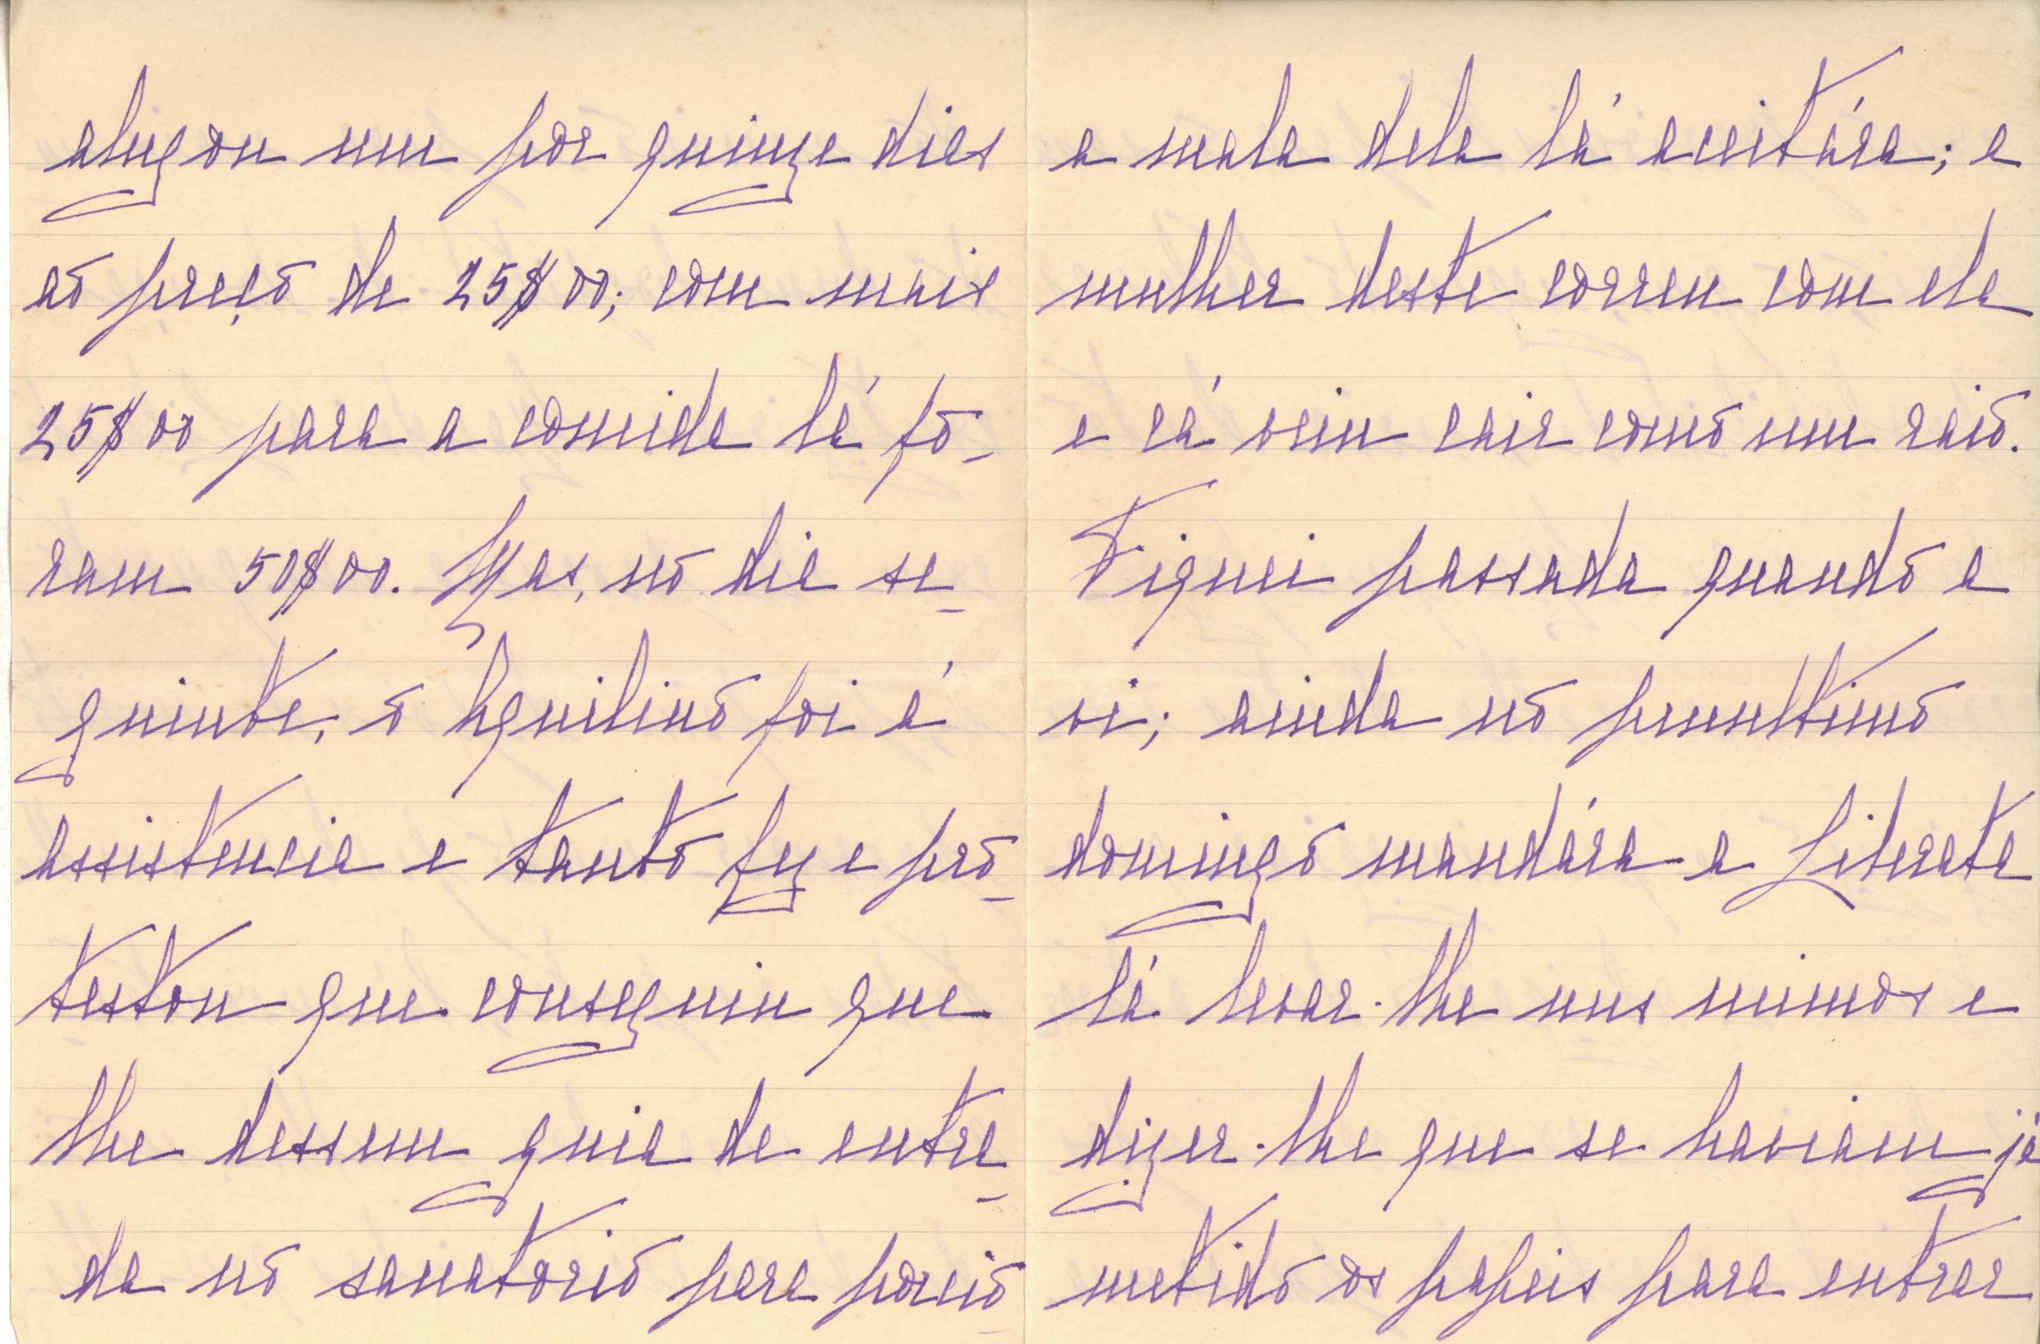 alugou um por quinze dias
aō preçō de 25$00; com mais
25$00 para a comida lá fō-
ram 50$00. Mas, nō dia se-
guinte, ō Aquilinō foi á
assistencia e tantō fez e prō-
testou que conseguiu que
lhe dessem guia de entra-
da nō sanatoriō para
a mala dela lá aceitára; a
mulher deste correu com ela
e cá veiu cair comō um raiō.
Fiquei passada quandō a
vi; ainda nō penultimō
domingō mandára a Liberata
lá levar-lhe uns mimos e
dizer-lhe que se haviam já
metidō os papeis para entrar